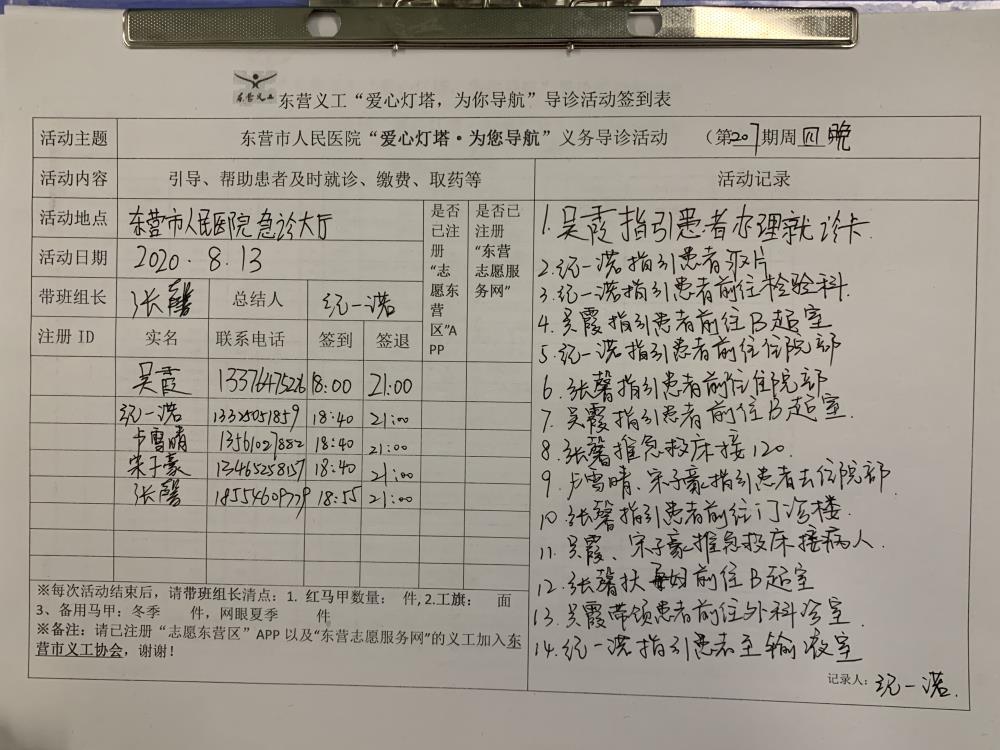 东营义工
东营义工“爱心灯塔，为你导航”导诊活动签到表
活动主题 东营市人民医院“爱心灯塔·为您导航”义务导诊活动 （第207期周四晚
活动内容 引导、帮助患者及时就诊、缴费、取药等 活动记录
活动地点 东营市人民医院急诊大厅
活动日期 2020.8.13
带班组长 张馨 总结人 纪一诺
是否已注册“志愿东营区”APP
是否已注册“东营志愿服务网”
注册 ID 实名 联系电话 签到 签退
吴霞 13376475226 18:00 21:00
纪一诺 13325051859 18:40 21:00
卢雪晴 13561027882 18:40 21:00
宋子豪 13465258157 18:40 21:00
张馨 18554609779 18:55 21:00
※每次活动结束后，请带班组长清点：1. 红马甲数量： 件, 2.工旗： 面
3、备用马甲：冬季 件，网眼夏季 件
※备注：请已注册“志愿东营区”APP 以及“东营志愿服务网”的义工加入东
营市义工协会，谢谢！
1.吴霞指引患者办理就诊卡.
2.纪一诺指引患者取片
3.纪一诺指引患者前往检验科.
4.吴霞指引患者前往B超室
5.纪一诺指引患者前往住院部
6.张馨指引患者前往住院部
7.吴霞指引患者前往B超室.
8.张馨推急救床接120.
9.卢雪晴、宋子豪指引患者去住院部.
10.张馨指引患者前往门诊楼.
11.吴霞、宋子豪推急救床接病人.
12.张馨扶 前往B超室
13.吴霞带领患者前往外科诊室.
14.纪一诺指引患者至输液室
记录人：纪一诺.